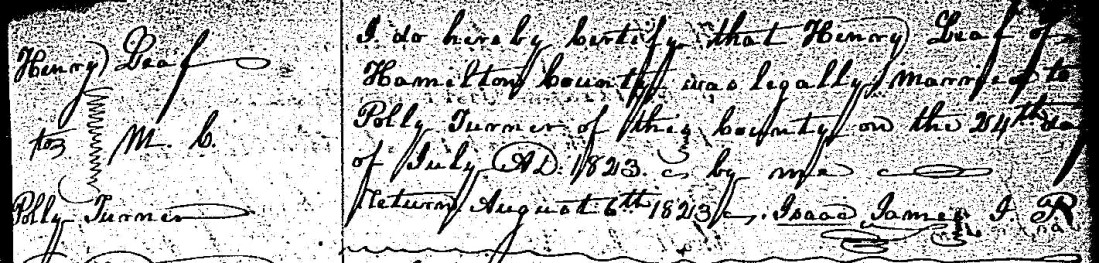 Henry Leaf
to M. C.
Polly Turner
I do hereby certify that Henry Leaf of
Hamilton County was legally married to
Polly Turner of this County on the 24th da
of July AD. 1823. by me
Return August 6th 1823 Isaac James J.